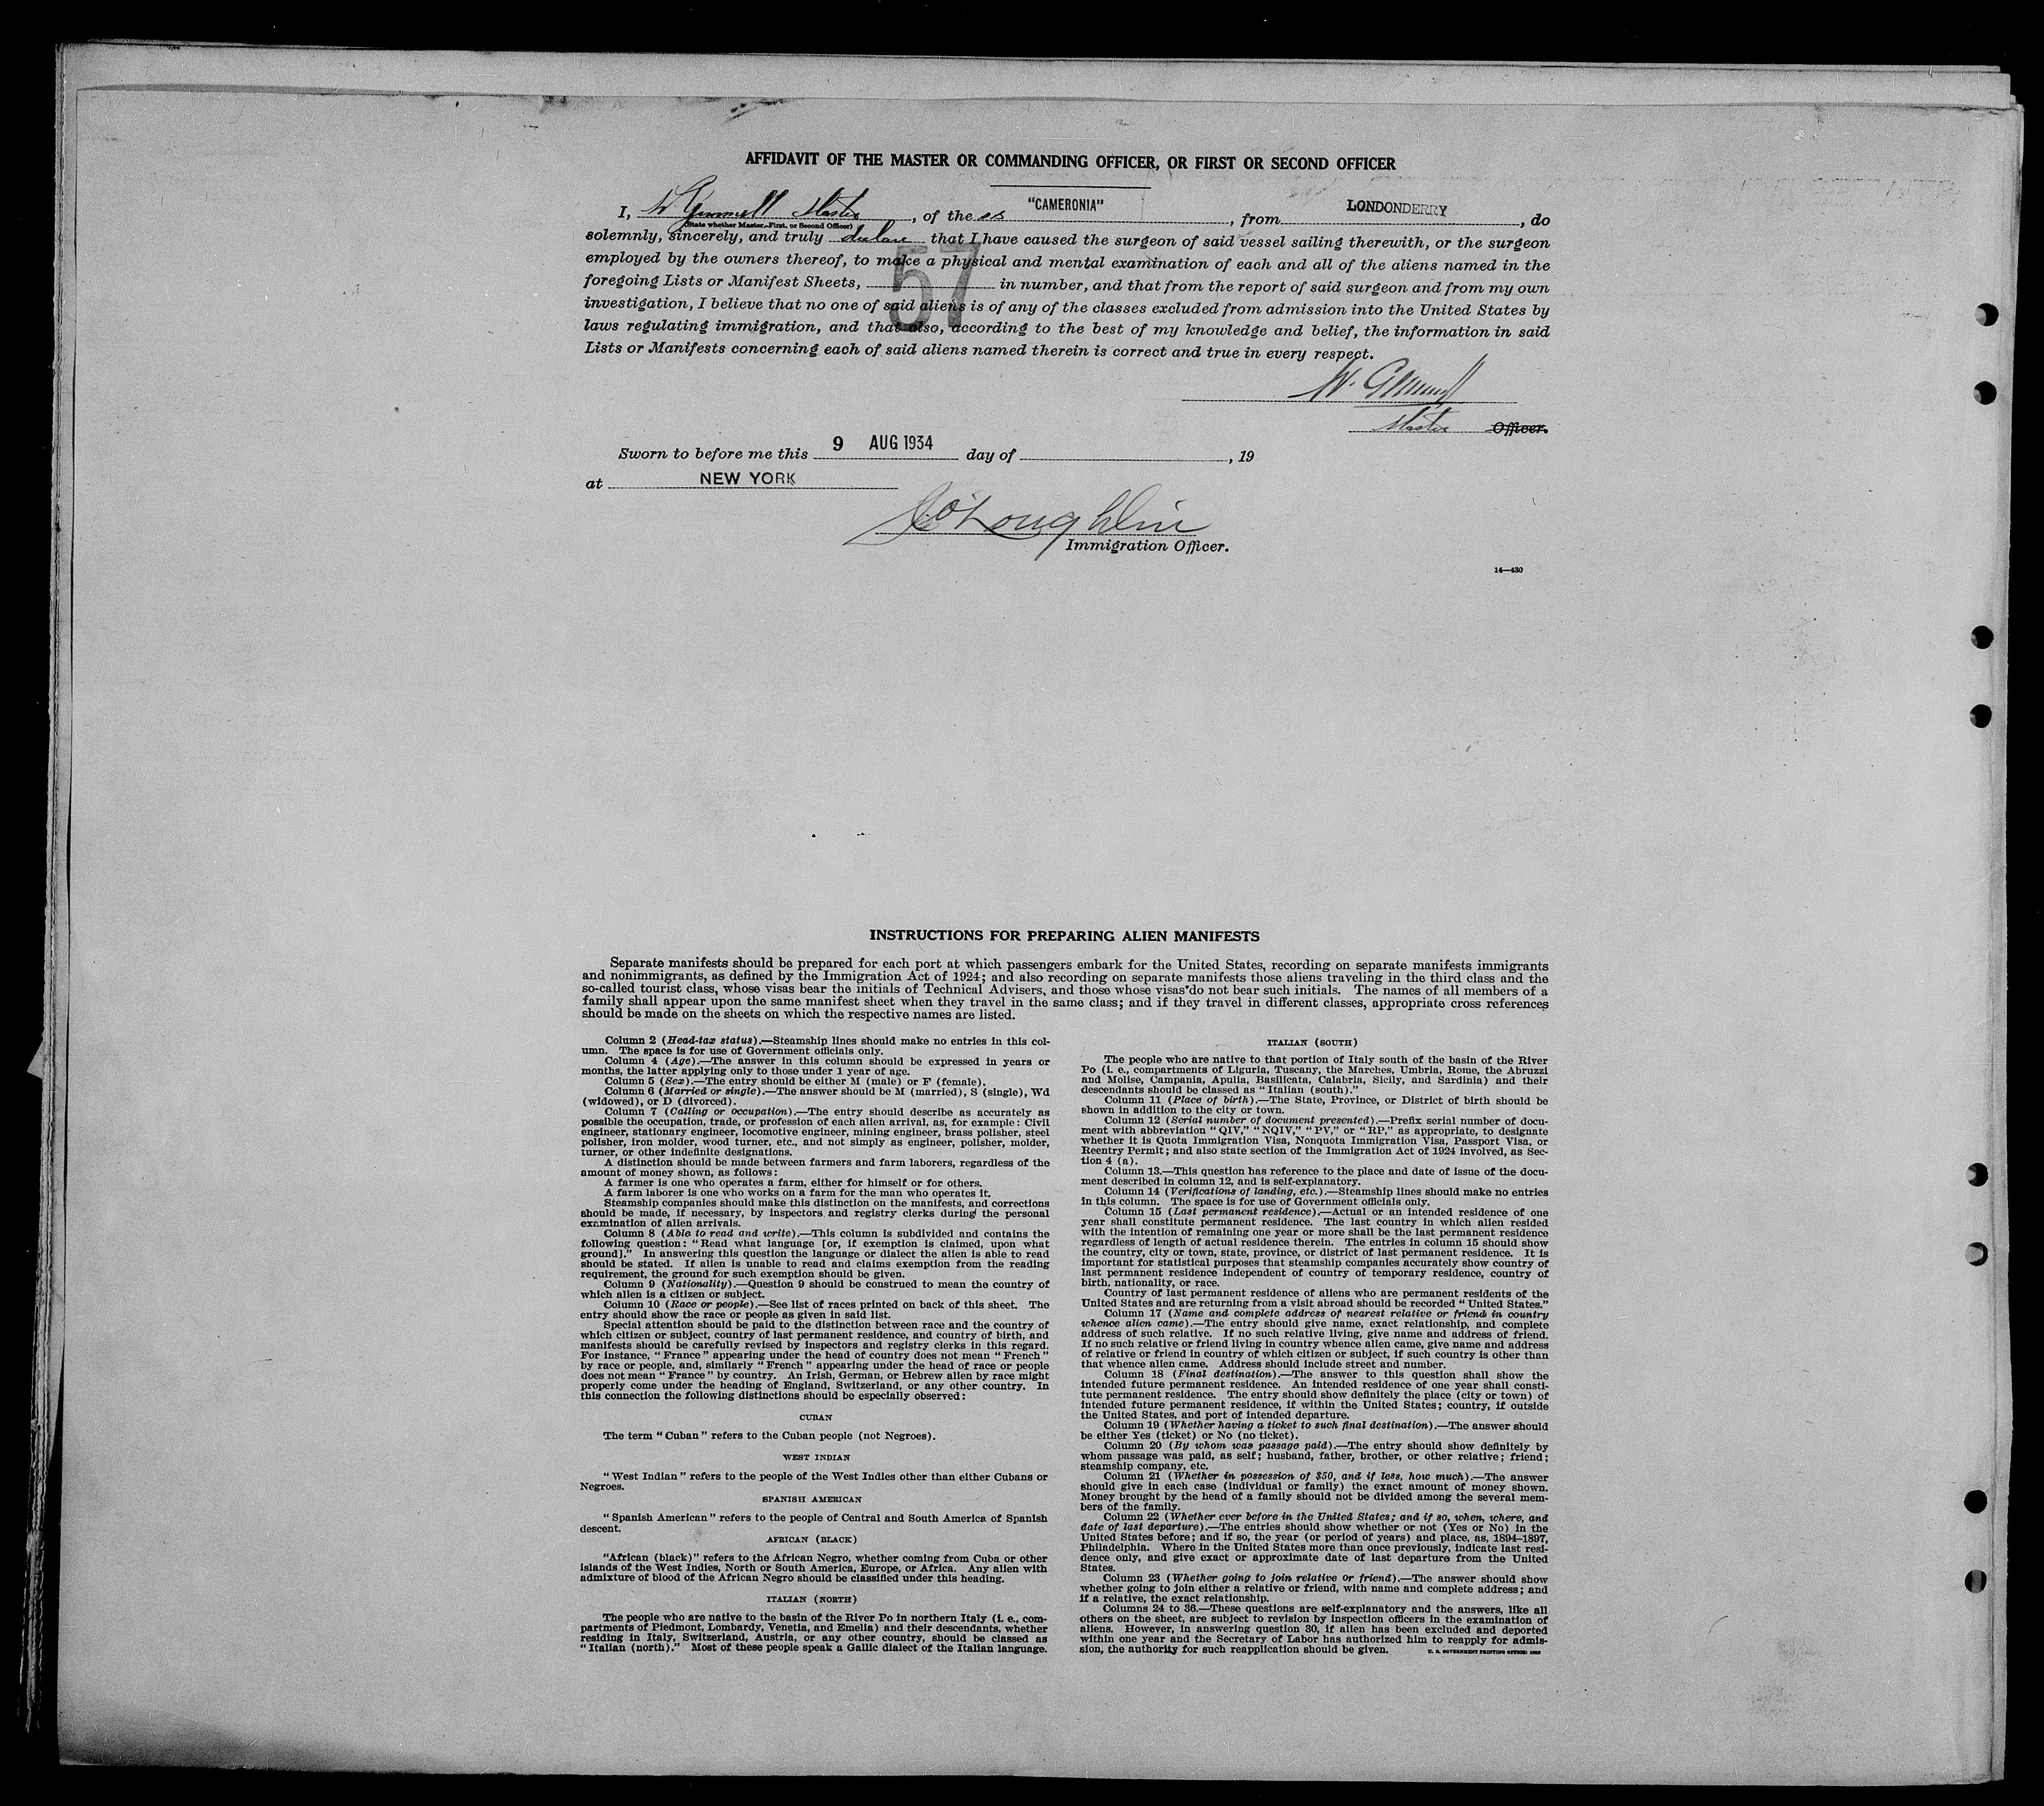 AFFIDAVIT OF THE MASTER OR COMMANDING OFFICER, OR FIRST OR SECOND OFFICER
I, W. Gemmell Master, of the ss "CAMERONIA", from LONDONDERRY, do
(State whether Master, First, or Second Officer)
solemnly, sincerely, and truly declare that I have caused the surgeon of said vessel sailing therewith, or the surgeon
employed by the owners thereof, to make a physical and mental examination of each and all of the aliens named in the
57
foregoing Lists or Manifest Sheets, in number, and that from the report of said surgeon and from my own
investigation, I believe that no one of said aliens is of any of the classes excluded from admission into the United States by
laws regulating immigration, and that also, according to the best of my knowledge and belief, the information in said
Lists or Manifests concerning each of said aliens named therein is correct and true in every respect.
W. Gemmell
Master Officer.
Sworn to before me this 9 AUG 1934 day of , 19
at NEW YORK
O'Loughlin
Immigration Officer.
14—430
INSTRUCTIONS FOR PREPARING ALIEN MANIFESTS
Separate manifests should be prepared for each port at which passengers embark for the United States, recording on separate manifests immigrants
and nonimmigrants, as defined by the Immigration Act of 1924; and also recording on separate manifests those aliens traveling in the third class and the
so-called tourist class, whose visas bear the initials of Technical Advisers, and those whose visas do not bear such initials. The names of all members of a
family shall appear upon the same manifest sheet when they travel in the same class; and if they travel in different classes, appropriate cross references
should be made on the sheets on which the respective names are listed.
Column 2 (Head-tax status).—Steamship lines should make no entries in this col-
umn. The space is for use of Government officials only.
Column 4 (Age).—The answer in this column should be expressed in years or
months, the latter applying only to those under 1 year of age.
Column 5 (Sex).—The entry should be either M (male) or F (female).
Column 6 (Married or single).—The answer should be M (married), S (single), Wd
(widowed), or D (divorced).
Column 7 (Calling or occupation).—The entry should describe as accurately as
possible the occupation, trade, or profession of each alien arrival, as, for example: Civil
engineer, stationary engineer, locomotive engineer, mining engineer, brass polisher, steel
polisher, iron molder, wood turner, etc., and not simply as engineer, polisher, molder,
turner, or other indefinite designations.
A distinction should be made between farmers and farm laborers, regardless of the
amount of money shown, as follows:
A farmer is one who operates a farm, either for himself or for others.
A farm laborer is one who works on a farm for the man who operates it.
Steamship companies should make this distinction on the manifests, and corrections
should be made, if necessary, by inspectors and registry clerks during the personal
examination of alien arrivals.
Column 8 (Able to read and write).—This column is subdivided and contains the
following question: "Read what language [or, if exemption is claimed, upon what
ground]." In answering this question the language or dialect the alien is able to read
should be stated. If alien is unable to read and claims exemption from the reading
requirement, the ground for such exemption should be given.
Column 9 (Nationality).—Question 9 should be construed to mean the country of
which alien is a citizen or subject.
Column 10 (Race or people).—See list of races printed on back of this sheet. The
entry should show the race or people as given in said list.
Special attention should be paid to the distinction between race and the country of
which citizen or subject, country of last permanent residence, and country of birth, and
manifests should be carefully revised by inspectors and registry clerks in this regard.
For instance, "France" appearing under the head of country does not mean "French"
by race or people, and, similarly "French" appearing under the head of race or people
does not mean "France" by country. An Irish, German, or Hebrew alien by race might
properly come under the heading of England, Switzerland, or any other country. In
this connection the following distinctions should be especially observed:
CUBAN
The term "Cuban" refers to the Cuban people (not Negroes).
WEST INDIAN
"West Indian" refers to the people of the West Indies other than either Cubans or
Negroes.
SPANISH AMERICAN
"Spanish American" refers to the people of Central and South America of Spanish
descent.
AFRICAN (BLACK)
"African (black)" refers to the African Negro, whether coming from Cuba or other
islands of the West Indies, North or South America, Europe, or Africa. Any alien with
admixture of blood of the African Negro should be classified under this heading.
ITALIAN (NORTH)
The people who are native to the basin of the River Po in northern Italy (i. e., com-
partments of Piedmont, Lombardy, Venetia, and Emelia) and their descendants, whether
residing in Italy, Switzerland, Austria, or any other country, should be classed as
"Italian (north)." Most of these people speak a Gallic dialect of the Italian language.
ITALIAN (SOUTH)
The people who are native to that portion of Italy south of the basin of the River
Po (i. e., compartments of Liguria, Tuscany, the Marches, Umbria, Rome, the Abruzzi
and Molise, Campania, Apulia, Basilicata, Calabria, Sicily, and Sardinia) and their
descendants should be classed as "Italian (south)."
Column 11 (Place of birth).—The State, Province, or District of birth should be
shown in addition to the city or town.
Column 12 (Serial number of document presented).—Prefix serial number of docu-
ment with abbreviation "QIV," "NQIV," "PV," or "RP," as appropriate, to designate
whether it is Quota Immigration Visa, Nonquota Immigration Visa, Passport Visa, or
Reentry Permit; and also state section of the Immigration Act of 1924 involved, as Sec-
tion 4 (a).
Column 13.—This question has reference to the place and date of issue of the docu-
ment described in column 12, and is self-explanatory.
Column 14 (Verifications of landing, etc.).—Steamship lines should make no entries
in this column. The space is for use of Government officials only.
Column 15 (Last permanent residence).—Actual or an intended residence of one
year shall constitute permanent residence. The last country in which alien resided
with the intention of remaining one year or more shall be the last permanent residence
regardless of length of actual residence therein. The entries in column 15 should show
the country, city or town, state, province, or district of last permanent residence. It is
important for statistical purposes that steamship companies accurately show country of
last permanent residence independent of country of temporary residence, country of
birth, nationality, or race.
Country of last permanent residence of aliens who are permanent residents of the
United States and are returning from a visit abroad should be recorded "United States."
Column 17 (Name and complete address of nearest relative or friend in country
whence alien came).—The entry should give name, exact relationship, and complete
address of such relative. If no such relative living, give name and address of friend.
If no such relative or friend living in country whence alien came, give name and address
of relative or friend in country of which citizen or subject, if such country is other than
that whence alien came. Address should include street and number.
Column 18 (Final destination).—The answer to this question shall show the
intended future permanent residence. An intended residence of one year shall consti-
tute permanent residence. The entry should show definitely the place (city or town) of
intended future permanent residence, if within the United States; country, if outside
the United States, and port of intended departure.
Column 19 (Whether having a ticket to such final destination).—The answer should
be either Yes (ticket) or No (no ticket).
Column 20 (By whom was passage paid).—The entry should show definitely by
whom passage was paid, as self; husband, father, brother, or other relative; friend;
steamship company, etc.
Column 21 (Whether in possession of $50, and if less, how much).—The answer
should give in each case (individual or family) the exact amount of money shown.
Money brought by the head of a family should not be divided among the several mem-
bers of the family.
Column 22 (Whether ever before in the United States; and if so, when, where, and
date of last departure).—The entries should show whether or not (Yes or No) in the
United States before; and if so, the year (or period of years) and place, as, 1894–1897,
Philadelphia. Where in the United States more than once previously, indicate last resi-
dence only, and give exact or approximate date of last departure from the United
States.
Column 23 (Whether going to join relative or friend).—The answer should show
whether going to join either a relative or friend, with name and complete address; and
if a relative, the exact relationship.
Columns 24 to 36.—These questions are self-explanatory and the answers, like all
others on the sheet, are subject to revision by inspection officers in the examination of
aliens. However, in answering question 30, if alien has been excluded and deported
within one year and the Secretary of Labor has authorized him to reapply for admis-
sion, the authority for such reapplication should be given.
U. S. GOVERNMENT PRINTING OFFICE: